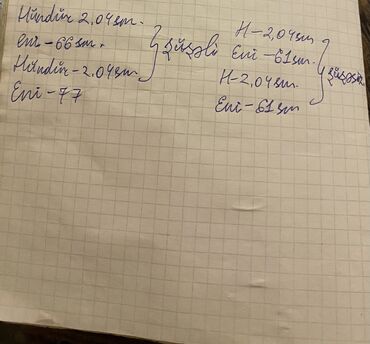 Hündür 2.04sm.
Eni-66sm.
Hündür-2.04sm
Eni-77
şüşəli
H-2,04sm
Eni-61sm.
H-2,04sm.
Eni-61sm
şüşəsiz